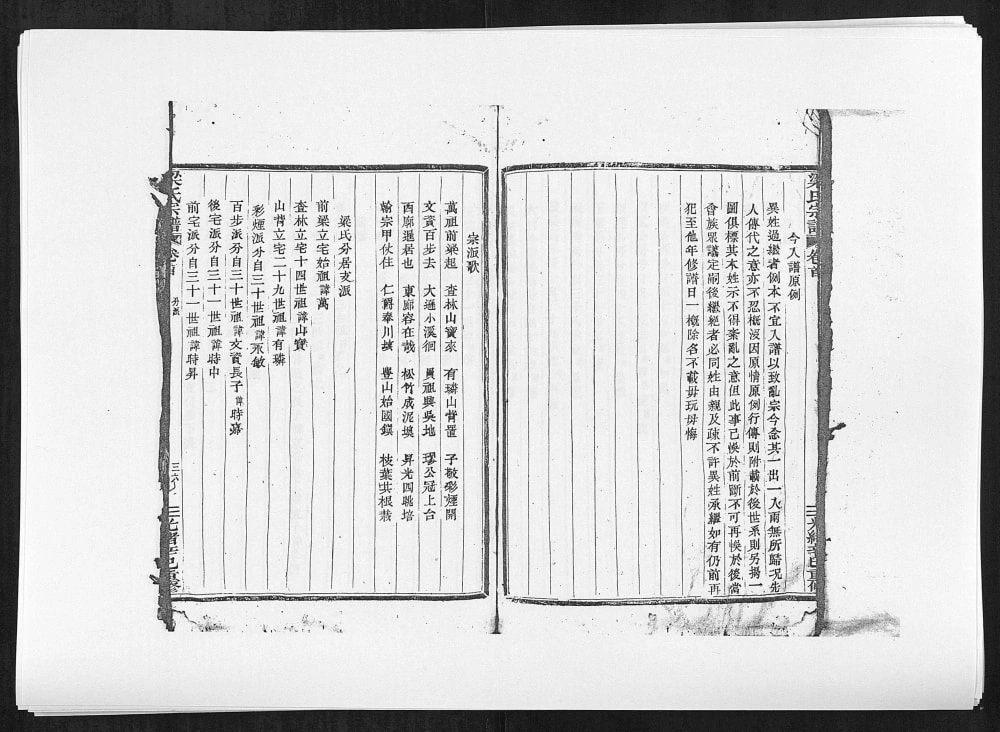 今入譜原例
異姓過繼者例本不宜入譜以致亂宗今念其一出一入兩無所歸况先
人傳代之意亦不忍概没因原情原例行傳則附載於後世系則另揚一
圖俱標其本姓示不得紊亂之意但此事已悞於前斷不可再悞於後當
會族眾議定嗣後繼絕者必同姓由親及疎不許異姓承繼如有仍前再
犯至他年修譜日一概除名不載毋玩毋悔
宗派歌
萬祖前梁起 查林山寶來 有璘山背置 子敏彩煙開
文資百步去 大通小溪徊 員祖興吳地 璆公冠上台
酉廊暹居也 東廊容在哉 松竹成泥墺 昇光四眺培
翰宗甲伏住 仁爵奉川坡 豐山始國鎮 枝葉共根栽
梁氏分居支派
前梁立宅始祖諱萬
查林立宅十四世祖諱山寶
山背立宅二十九世祖諱有璘
彩煙派分自三十世祖諱永敏
百步派分自三十世祖諱文資長子諱時嘉
後宅派分自三十一世祖諱時中
前宅派分自三十一世祖諱時昇
梁氏宗譜 卷首 分派